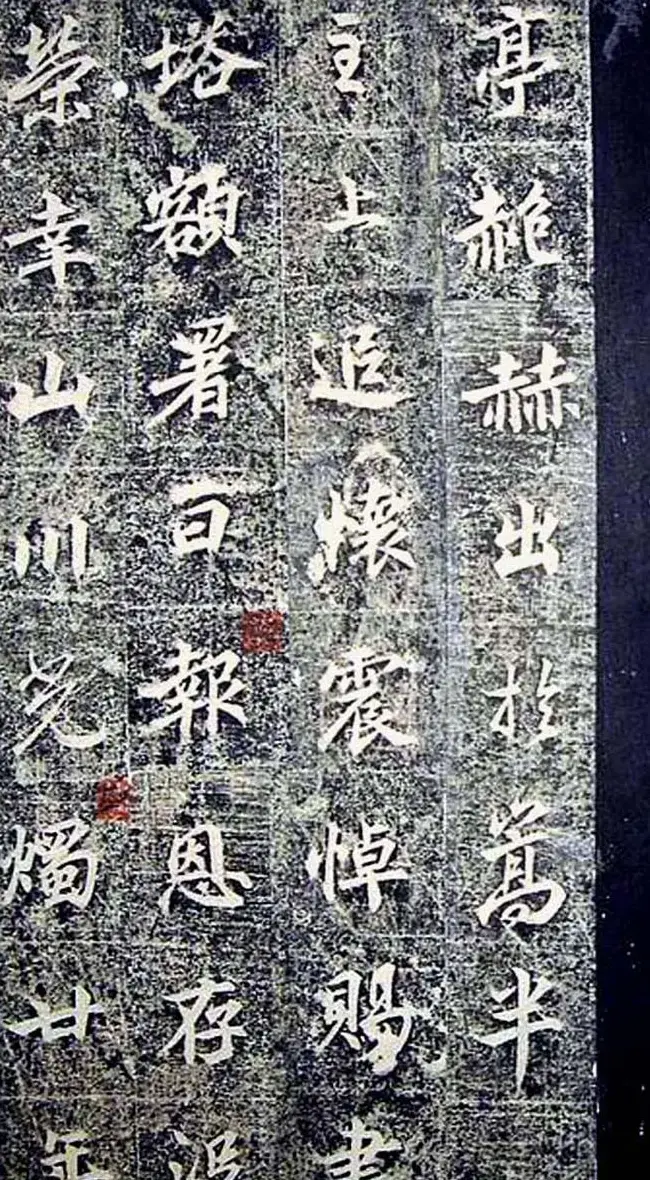 亭赩赫出於嵩半
主上追懷震悼賜書
塔額署曰報恩存没
榮幸山川光燭廿年